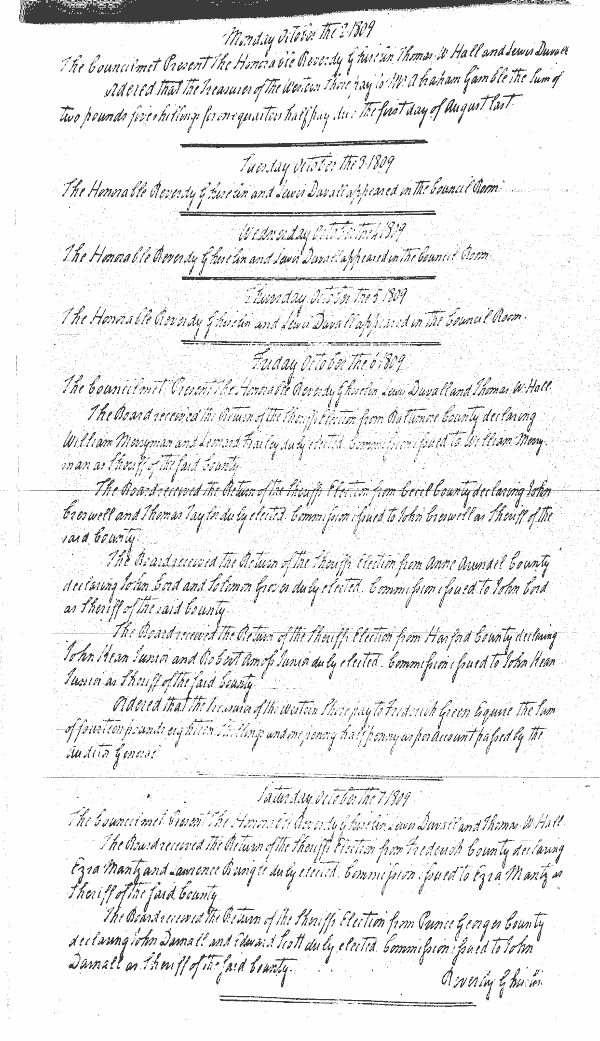 Monday October the 2 1809
The Council met Present The Honorable Reverdy Ghiselin Thomas W Hall and Lewis Duvall
Ordered that the Treasurer of the Western Shore pay to Mr. Abraham Gamble the Sum of
two pounds five shillings for one quarters half pay due the first day of August last.
Tuesday October the 3 1809
The Honorable Reverdy Ghiselin and Lewis Duvall appeared in the Council Room.
Wednesday October the 4 1809
The Honorable Reverdy Ghiselin and Lewis Duvall appeared in the Council Room
Thursday October the 5 1809
The Honorable Reverdy Ghiselin and Lewis Duvall appeared in the Council Room.
Friday October the 6 1809
The Council met Present The Honorable Reverdy Ghiselin Lewis Duvall and Thomas W. Hall.
The Board received the Return of the Sheriffs Election from Baltimore County declaring
William Merryman and Leonard duly elected. Commission issued to William Merry
man as Sheriff of the said County
The Board received the Return of the Sheriffs Election from Cecil County declaring John
Creswell and Thomas Taylor duly elected. Commission issued to John Creswell as Sheriff of the
said County
The Board received the Return of the Sheriffs Election from Anne Arundel County
declaring John Cord and Solomon Grover duly elected. Commission issued to John Cord
as Sheriff of the said County.
The Board received the Return of the Sheriffs Election from Harford County declaring
John Kean Junior and Robert Amoss Junior duly elected. Commission issued to John Kean
Junior as Sheriff of the said County
Ordered that the Treasurer of the Western Shore pay to Frederick Green Esquire the Sum
of fourteen pounds eighteen shillings and one penny half penny as per account passed by the
Auditor General
Saturday October the 7 1809
The Council met Present The Honorable Reverdy Ghiselin Lewis Duvall and Thomas W Hall
The Board received the Return of the Sheriffs Election from Frederick County declaring
Ezra Mantz and Laurence duly elected. Commission issued to Ezra Mantz as
Sheriff of the said County
The Board received the Return of the Sheriffs Election from Prince Georges County
declaring John Darnall and Edward Scott duly elected Commission issued to John
Darnall as Sheriff of the said County.
Reverdy Ghiselin